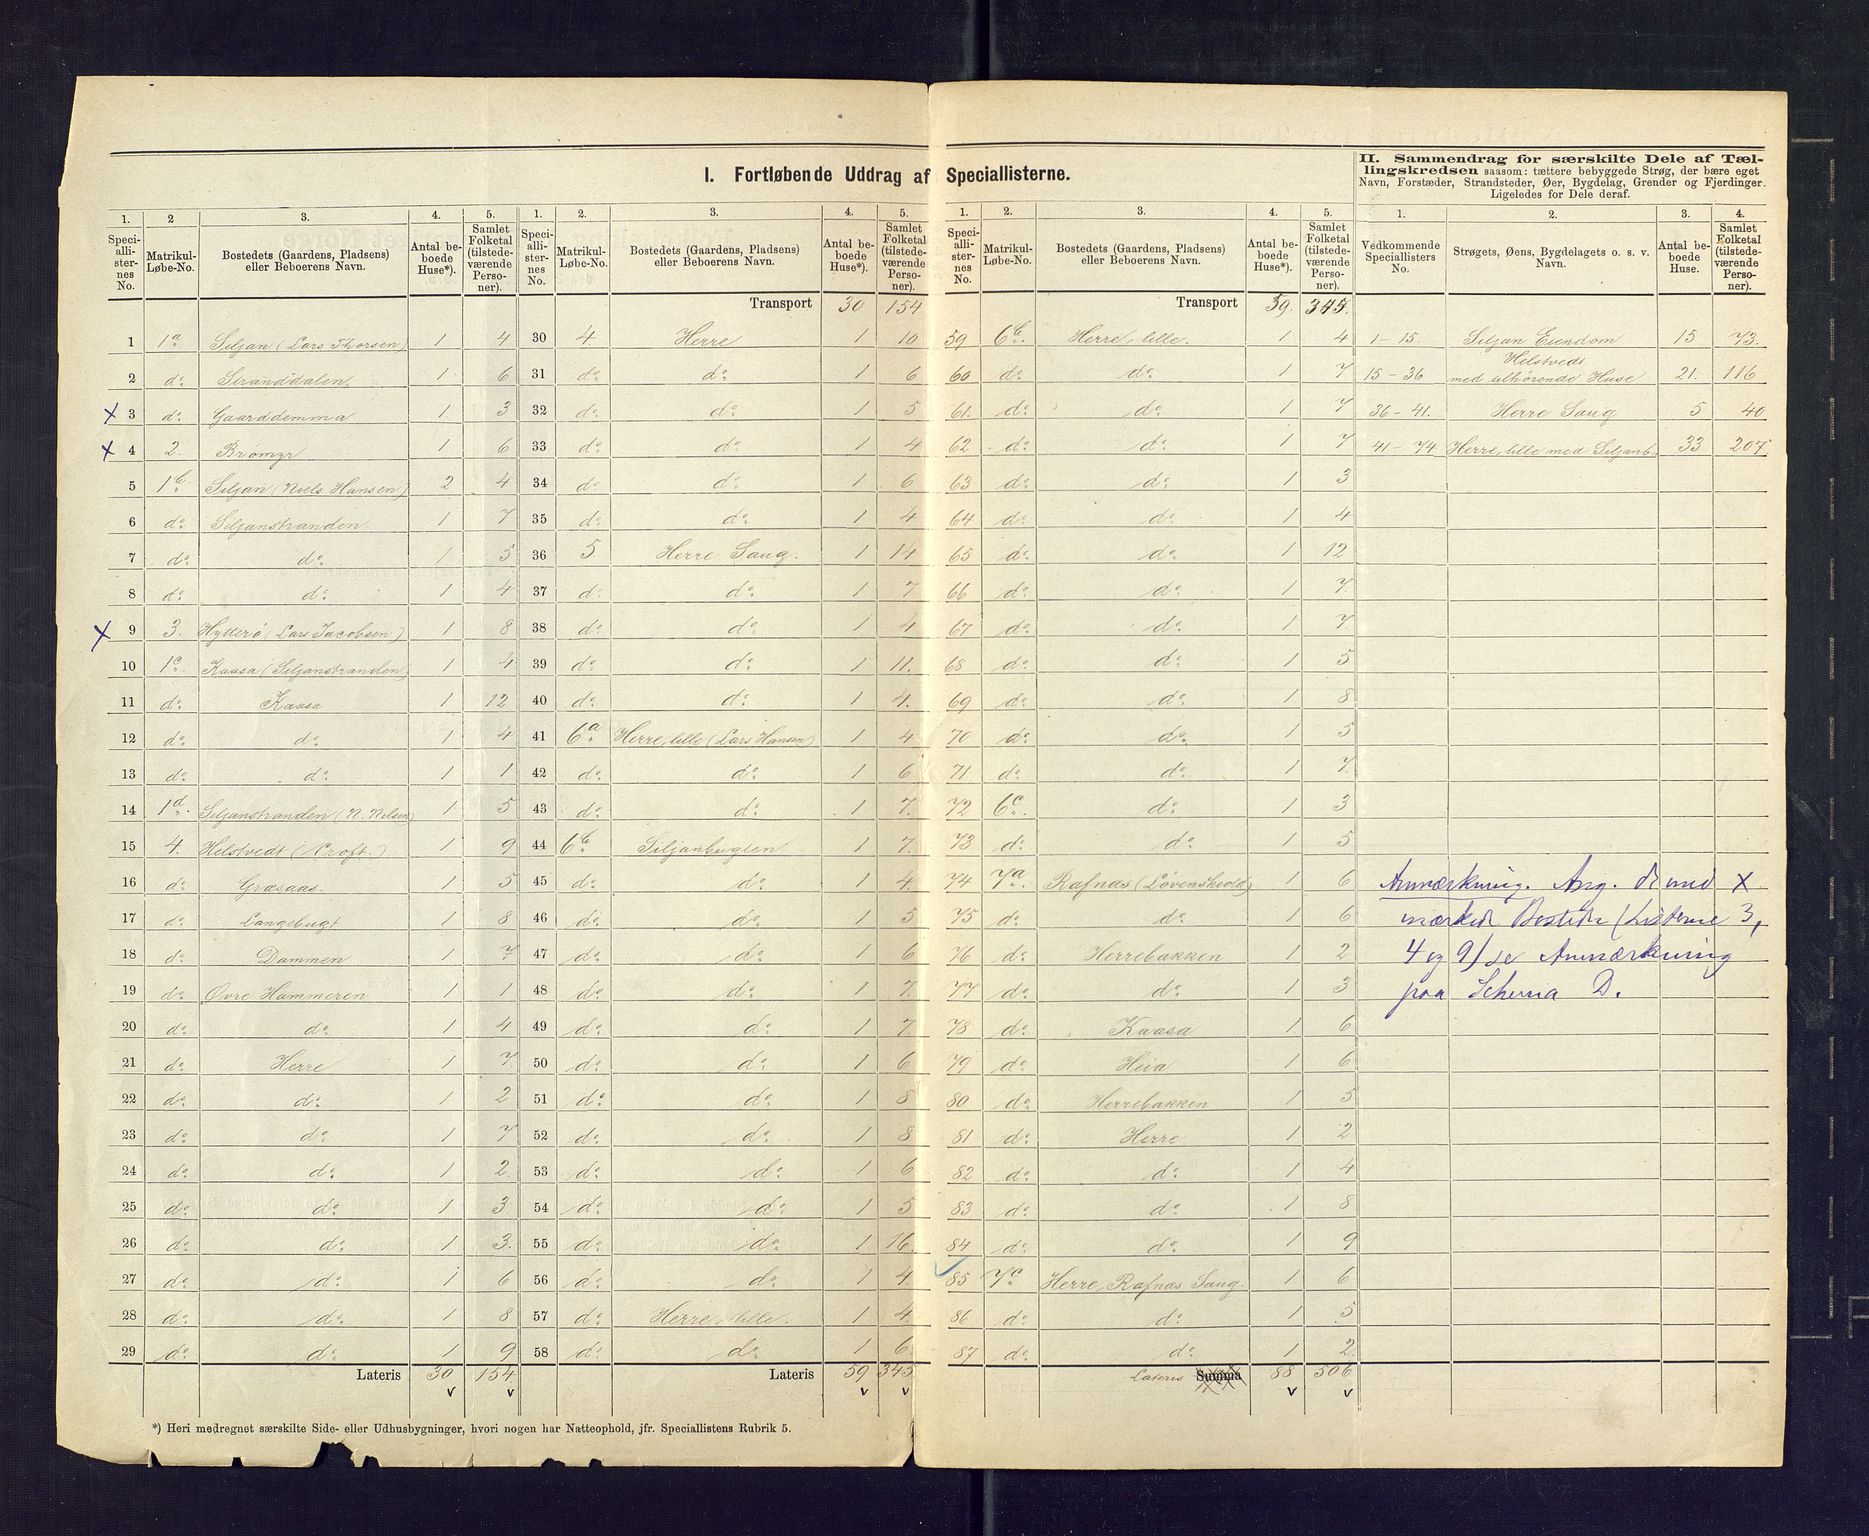 I. Fortløbende Uddrag af Speciallisterne.
II. Sammendrag for særskilte Dele af Tæl-
lingskredsen saasom: tættere bebyggede Strøg, der bære eget
Navn, Forstæder, Strandsteder, Øer, Bygdelag, Grender og Fjerdinger.
Ligeledes for Dele deraf.
1. 2 3. 4. 5.
Speci-allister-nes No. Matrikul-Løbe-No. Bostedets (Gaardens, Pladsens) eller Beboerens Navn. Antal be-boede Huse*). Samlet Folketal (tilstede-værende Perso-ner).
1 1a Siljan (Lars Thorsen) 1 4
2 do Stranddalen 1 6
x 3 do Gaarddemma 1 3
x 4 2. Brømyr 1 6
5 1b Siljan (Niels Hansen) 2 4
6 do Siljanstranden 1 7
7 do do 1 5
8 do do 1 4
x 9 3. Hytterø (Lars Jacobsen) 1 8
10 1c Kaasa (Siljanstranden) 1 4
11 do Kaasa 1 12
12 do do 1 4
13 do do 1 1
14 1d Siljanstranden (N. Nilsen) 1 5
15 4. Helstvedt (Croft.) 1 9
16 do Græsaas. 1 5
17 do Langebugt 1 8
18 do Dammen 1 7
19 do Øvre Hammeren 1 1
20 do do 1 4
21 do Herre 1 7
22 do do 1 2
23 do do 1 7
24 do do 1 2
25 do do 1 3.
26 do do 1 3.
27 do do 1 6
28 do do 1 8
29 do do 1 9
Lateris 30 154
v v
1. 2. 3. 4. 5.
Speci-allister-nes No. Matrikul-Løbe-No. Bostedets (Gaardens, Pladsens) eller Beboerens Navn. Antal be-boede Huse*). Samlet Folketal (tilstede-værende Perso-ner).
Transport 30 154
30 4. Herre 1 10
31 do do 1 6
32 do do 1 5
33 do do 1 4
34 do do 1 6
35 do do 1 4
36 5 Herre Saug. 1 14
37 do do 1 7
38 do do 1 4
39 do do 1 11.
40 do do 1 4.
41 6a Herre, lille (Lars Hansen) 1 4
42 do do 1 6
43 do do 1 7.
44 6b Siljanbugten 1 7.
45 do do 1 4.
46 do do 1 5
47 do do 1 6
48 do do 1 7.
49 do do 1 7.
50 do do 1 6
51 do do 1 8
52 do do 1 8
53 do do 1 6
54 do do 1 5
55 do do 1 16.
56 do do 1 4.
57 do Herre, lille. 1 4.
58 do do 1 6.
Lateris 59 345
v v
1. 2. 3. 4. 5.
Speci-allister-nes No. Matrikul-Løbe-No. Bostedets (Gaardens, Pladsens) eller Beboerens Navn. Antal be-boede Huse*). Samlet Folketal (tilstede-værende Perso-ner).
Transport 59. 345.
59 6b. Herre, lille. 1 4
60 do do 1 7
61. do do 1 7
62 do do 1 7
63 do do 1 3
64 do do 1 4
65 do do 1 12
66 do do 1 7.
67 do do 1 7.
68 do do 1 5
69 do do 1 8
70 do do 1 5
71 do do 1 7.
72 6c. do 1 3
73 do do 1 5
74 7a. Rafnæs (Løvenskiold) 1 6
75 do do 1 6
76 do Herrebakken 1 2
77 do do 1 3
78 do Kaasa 1 6
79 do Heia 1 6
80 do Herrebakken 1 5
81 do Herre 1 2
82 do do 1 4
83 do do 1 8
84 do do 1 9
85 7c Herre, Rafnæs Saug. 1 6
86 do do 1 5
87 do do 1 2
Lateris Summa 88 506
v v
1. 2. 3. 4.
Vedkommende Speciallisters No. Strøgets, Øens, Bygdelagets o. s. v. Navn. Antal be-boede Huse. Samlet Folketal (tilstede-værende Perso-ner).
1-15. Siljan Eiendom 15 73.
15-36 Helstvedt med tilhørende Huse 21. 116
36-41. Herre Saug 5 40.
41-74 Herre, lille med Siljanb. 33 207
Anmærkning. Ang. de med x
mærkede Bosteder (Listerne 3,
4 og 9) se Anmærkning
paa Schema D.
*) Heri medregnet særskilte Side- eller Udhusbygninger, hvori nogen har Natteophold, jfr. Speciallistens Rubrik 5.